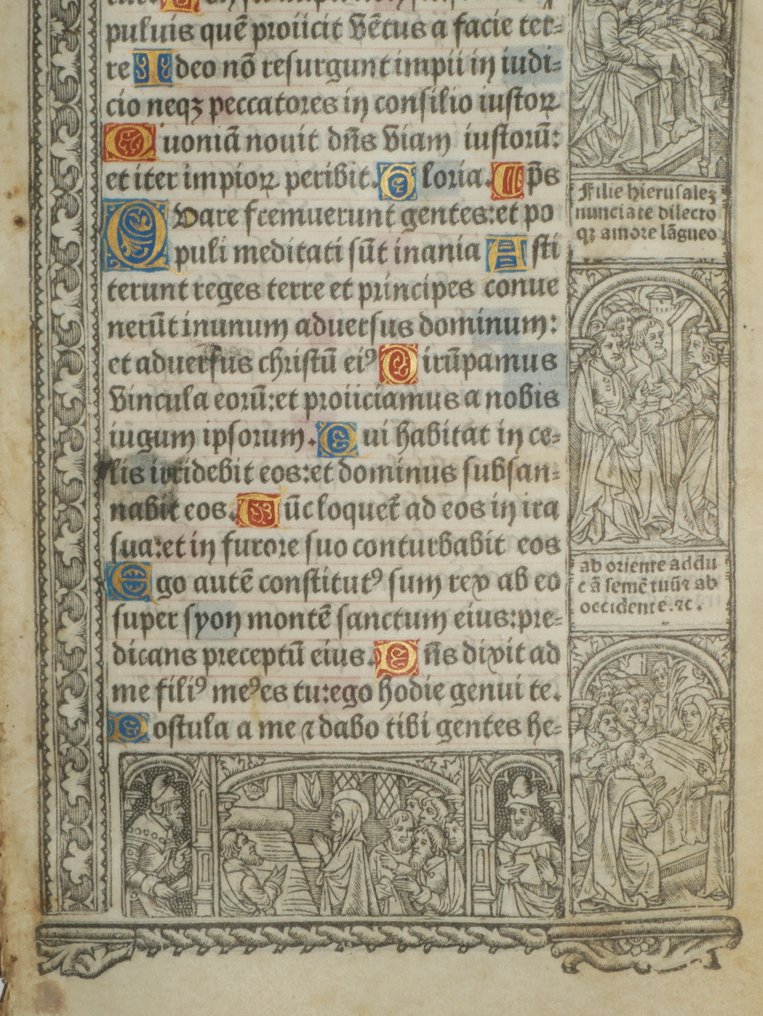 puluis quē proiicit vētus a facie ter=
re Ideo nō resurgunt impii in iudi-
cio neqꝫ peccatores in consilio iustoꝝ
Quoniā nouit dn̄s viam iustorū:
et iter impioꝝ peribit. Gloria. p̄s
Quare fremuerunt gentes: et po
puli meditati sūt inania Asti
terunt reges terre et principes conue
nerūt in unum aduersus dominum:
et aduersus christū eiꝰ Dirūpamus
vincula eorū: et proiiciamus a nobis
iugum ipsorum. Qui habitat in ce=
lis irridebit eos: et dominus subsan=
nabit eos. Tūc loquet̄ ad eos in ira
sua: et in furore suo conturbabit eos
Ego autē constitutꝰ sum rex ab eo
super syon montē sanctum eius: pre=
dicans preceptū eius. Dn̄s dixit ad
me filiꝰ meꝰ es tu: ego hodie genui te.
Postula a me ⁊ dabo tibi gentes he=
Filie hierusaleꝫ
nunciate dilecto
qꝫ amore lāgueo
ab oriente addu
cā semē tuū ⁊ ab
occidente. ⁊c.